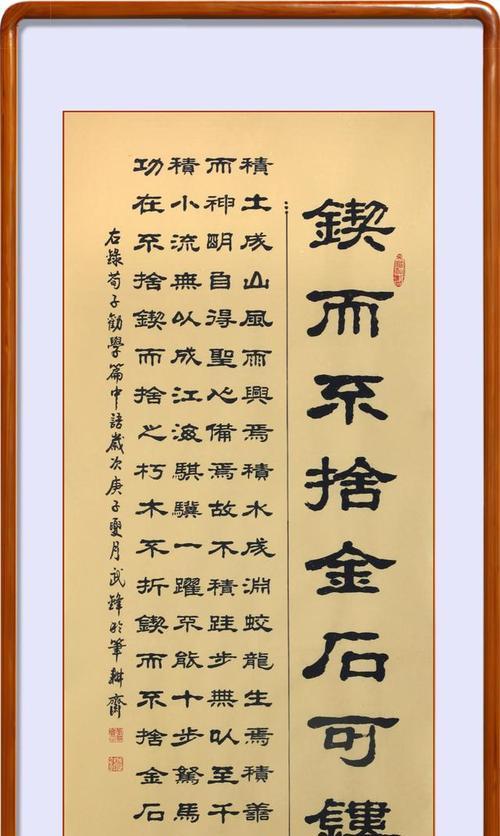 鍥而不捨金石可鏤
積土成山風雨興焉積水成淵蛟龍生焉積善
而神明自得聖心備焉故不積跬步無以至千
積小流無以成江海騏驥一躍不能十步駑馬
功在不捨鍥而捨之朽木不折鍥而不捨金石
右錄荀子勸學篇中語歲次庚子夏月武鋒於筆耕齋